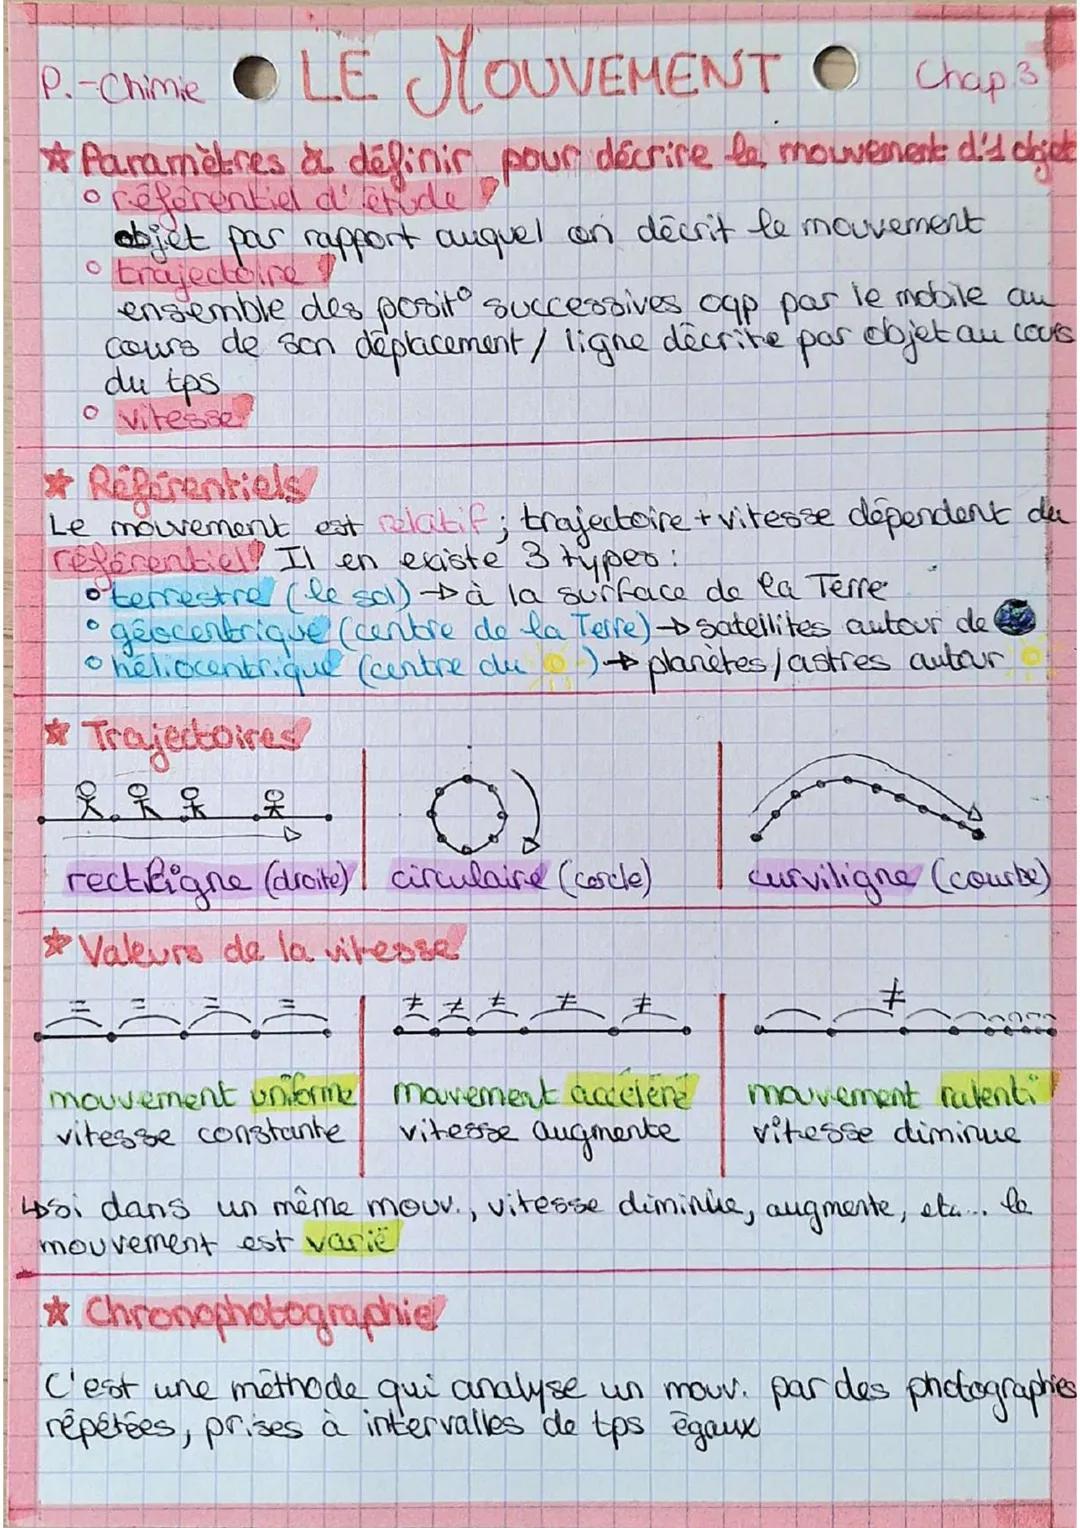 P.-Chimie LE MOUVEMENT Chap.3
☆ Paramètres à définir pour décrire le mouvement d'1 objet
° référentiel d'étude
objet par rapport auquel on décrit le mouvement
° trajectoire
ensemble des posit° successives oqp par le mobile au
cours de son déplacement / ligne décrite par objet au cours
du tps
° vitesse
☆ Référentiels
Le mouvement est relatif ; trajectoire + vitesse dépendent du
référentiel Il en existe 3 types :
° terrestre (le sol) → à la surface de la Terre
° géocentrique (centre de la Terre) → satellites autour de
° héliocentrique (centre du ) → planètes / astres autour
☆ Trajectoires
rectiligne (droite) circulaire (cercle) curviligne (courbe)
☆ Valeurs de la vitesse
= = = = ≠ ≠ ≠ ≠ ≠ ≠
mouvement uniforme mouvement accéléré mouvement ralenti
vitesse constante vitesse augmente vitesse diminue
↳ si dans un même mouv., vitesse diminue, augmente, etc... le
mouvement est varié
☆ Chronophotographie
C'est une méthode qui analyse un mouv. par des photographies
répétées, prises à intervalles de tps égaux